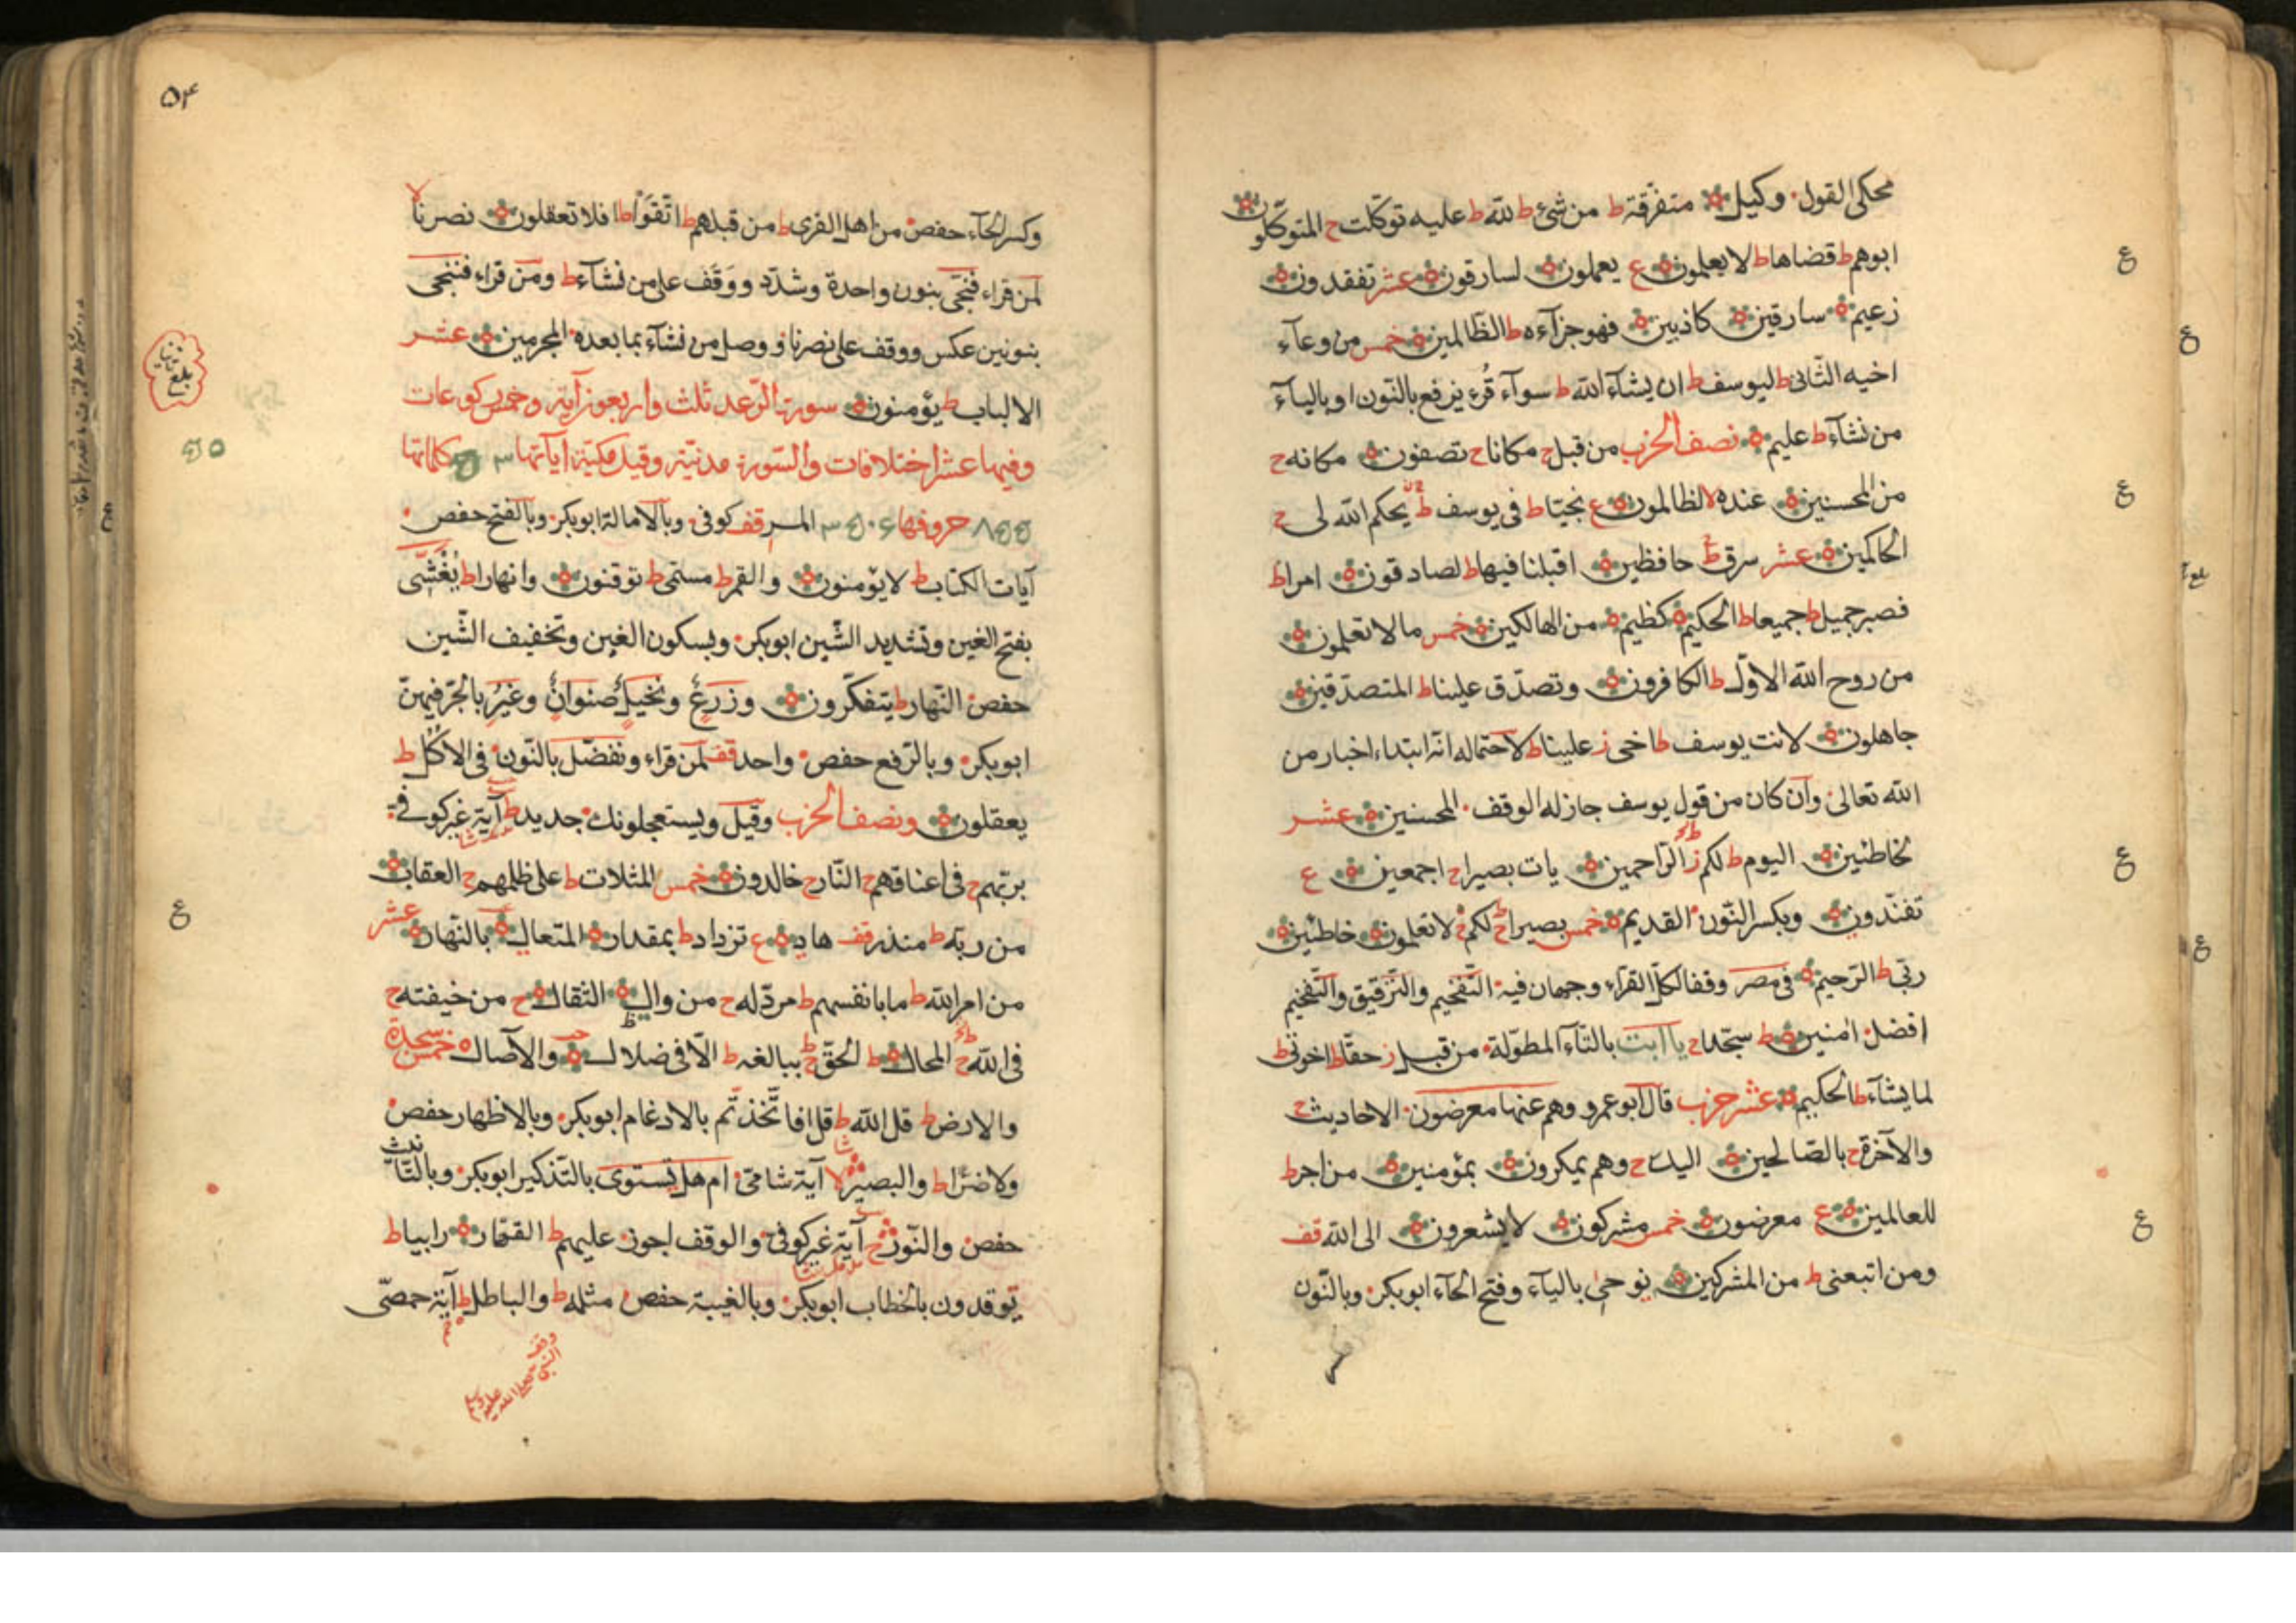 محكى القول وكيل متفرّقة ط من شئ ط لله ط عليه توكّلت ح المتوكّلون
ابوهم ط قضاها ط لا يعلمون ع يعملون لسارقون عشر تفقدون
زعيم سارقين كاذبين فهو جزآءه ط الظّالمين خمس من وعآء
اخيه الثّانى ط ليوسف ط ان يشآء الله ط سوآء قُرء يرفع بالنّون او باليآء
من نشآء ط عليم نصف الحزب من قبل ح مكانا ح تصفون مكانه ح
من المحسنين عنده لا لظالمون ع نجيّا ط فى يوسف ط يحكم الله لى ح
الحاكمين عشر سرق ط حافظين اقبلنا فيها ط لصادقون امرا ط
فصبر جميل ط جميعا ط الحكيم كظيم من الهالكين خمس ما لا تعلمون
من روح الله الاوّل ط الكافرون وتصدّق علينا ط المتصدّقين
جاهلون لانت يوسف ط اخى ز علينا ط لاحتماله انّه ابتداء اخبار من
الله تعالى وان كان من قول يوسف جاز له الوقف المحسنين عشر
لخاطئين اليوم ط لكم ز الرّاحمين يات بصيرا ح اجمعين ع
تفنّدون وبكسر النّون القديم خمس بصيرا ح لكم لا تعلمون خاطئين
ربّى ط الرّحيم فى مصر وقفا لكلّ القرّاء وجهان فيه التّفخيم والتّرقيق والتّفخيم
افضل امنين ط سجّدا ح يا ابت بالتّآء المطوّلة من قبل ز حقّا ط اخوتى ط
لما يشآء ط الحكيم عشر حزب قال ابو عمرو وهم عنها معرضون الاحاديث ح
والآخرة ح بالصّالحين اليك ح وهم يمكرون بمؤمنين من اجر ط
للعالمين ع معرضون خمس مشركون لا يشعرون الى الله قف
ومن اتبعنى ط من المشركين نوحى باليآء وفتح الحآء ابوبكر وبالنّون
ع
ع
ع
ع
۵۴
وكسر الحآء حفص من اهل القرى ط من قبلهم ط اتّقوا ط افلا تعقلون نصرنا لا
لمن قراء فنجّى بنون واحدة وشدّد ووقف على من نشآء ط ومن قراء فننجى
بنونين عكس ووقف على نصرنا ووصل من نشآء بما بعده المجرمين عشر
الالباب ط يؤمنون سورة الرّعد ثلث واربعون آية وخمس ركوعات
وفيها عشر اختلافات والسّورة مدنيّة وقيل مكيّة اياتها كلماتها
حروفها المر قف كوفى وبالامالة ابوبكر وبالفتح حفص
آيات الكتاب ط لا يؤمنون والقمر ط مسمّى ط توقنون وانهارا ط يُغَشّى
بفتح الغين وتشديد الشّين ابوبكر وبسكون الغين وتخفيف الشّين
حفص النّهار ط يتفكّرون وزرع ونخيل صنوان وغير بالجرّ فيهنّ
ابوبكر وبالرّفع حفص واحد قف لمن قراء ونفضّل بالنّون فى الاكل ط
يعقلون ونصف الحزب وقيل ويستعجلونك جديد ط آية غير كوفى
بربّهم ح فى اعناقهم ح النّار ح خالدون خمس المثلات ط على ظلمهم ح العقاب
من ربّه ط منذر قف هاد ع تزداد ط بمقدار المتعال بالنّهار عشر
من امر الله ط ما بانفسهم ط مردّ له ح من وال الثقال ح من خيفته ح
فى الله ح المحال ط الحقّ ط ببالغه ط الّا فى ضلال والآصال خمس سجدة
والارض ط قل الله ط قل افاتّخذتّم بالادغام ابوبكر وبالاظهار حفص
ولا ضرّا ط والبصير لا آية شامى ام هل يستوى بالتّذكير ابوبكر وبالتّانيث
حفص والنّور ح آية غير كوفى والوقف اجوز عليهم ط القهّار رابيا ط
توقدون بالخطاب ابوبكر وبالغيبة حفص مثله ط والباطل ط آية حمصّى
وقف النبى صلى الله عليه وسلم
ع
بلغ